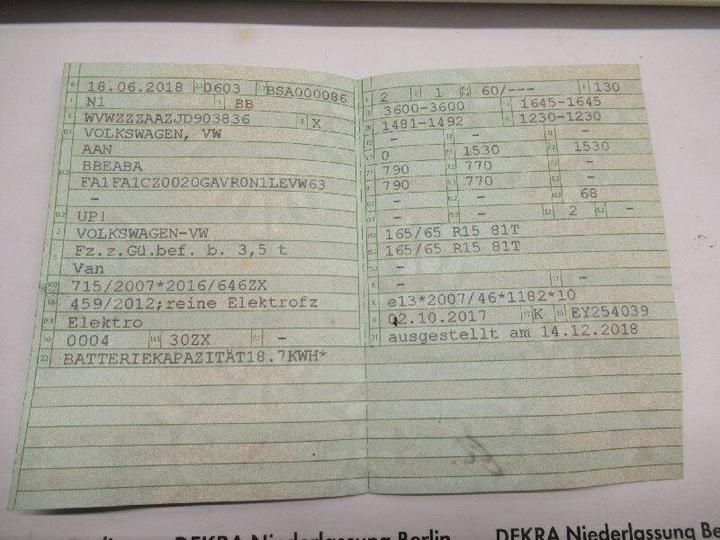 18.06.2018 0603 BSA000086
N1 BB
WVWZZZAAZJD903836 X
VOLKSWAGEN, VW
AAN
BBEABA
FA1FA1CZ0020GAVR0N1LEVW63
-
UP!
VOLKSWAGEN-VW
Fz.z.Gü.bef. b. 3,5 t
Van
715/2007*2016/646ZX
459/2012;reine Elektrofz
Elektro
0004 30ZX -
BATTERIEKAPAZITÄT18.7KWH*
2 1 60/--- 130
3600-3600 1645-1645
1481-1492 1230-1230
- - -
0 1530 1530
790 770 -
790 770 -
- - 68
- - 2 -
165/65 R15 81T
165/65 R15 81T
-
- -
e13*2007/46*1182*10
02.10.2017 K EY254039
ausgestellt am 14.12.2018
DEKRA Niederlassung Berlin
DEKRA Niederlassung Be